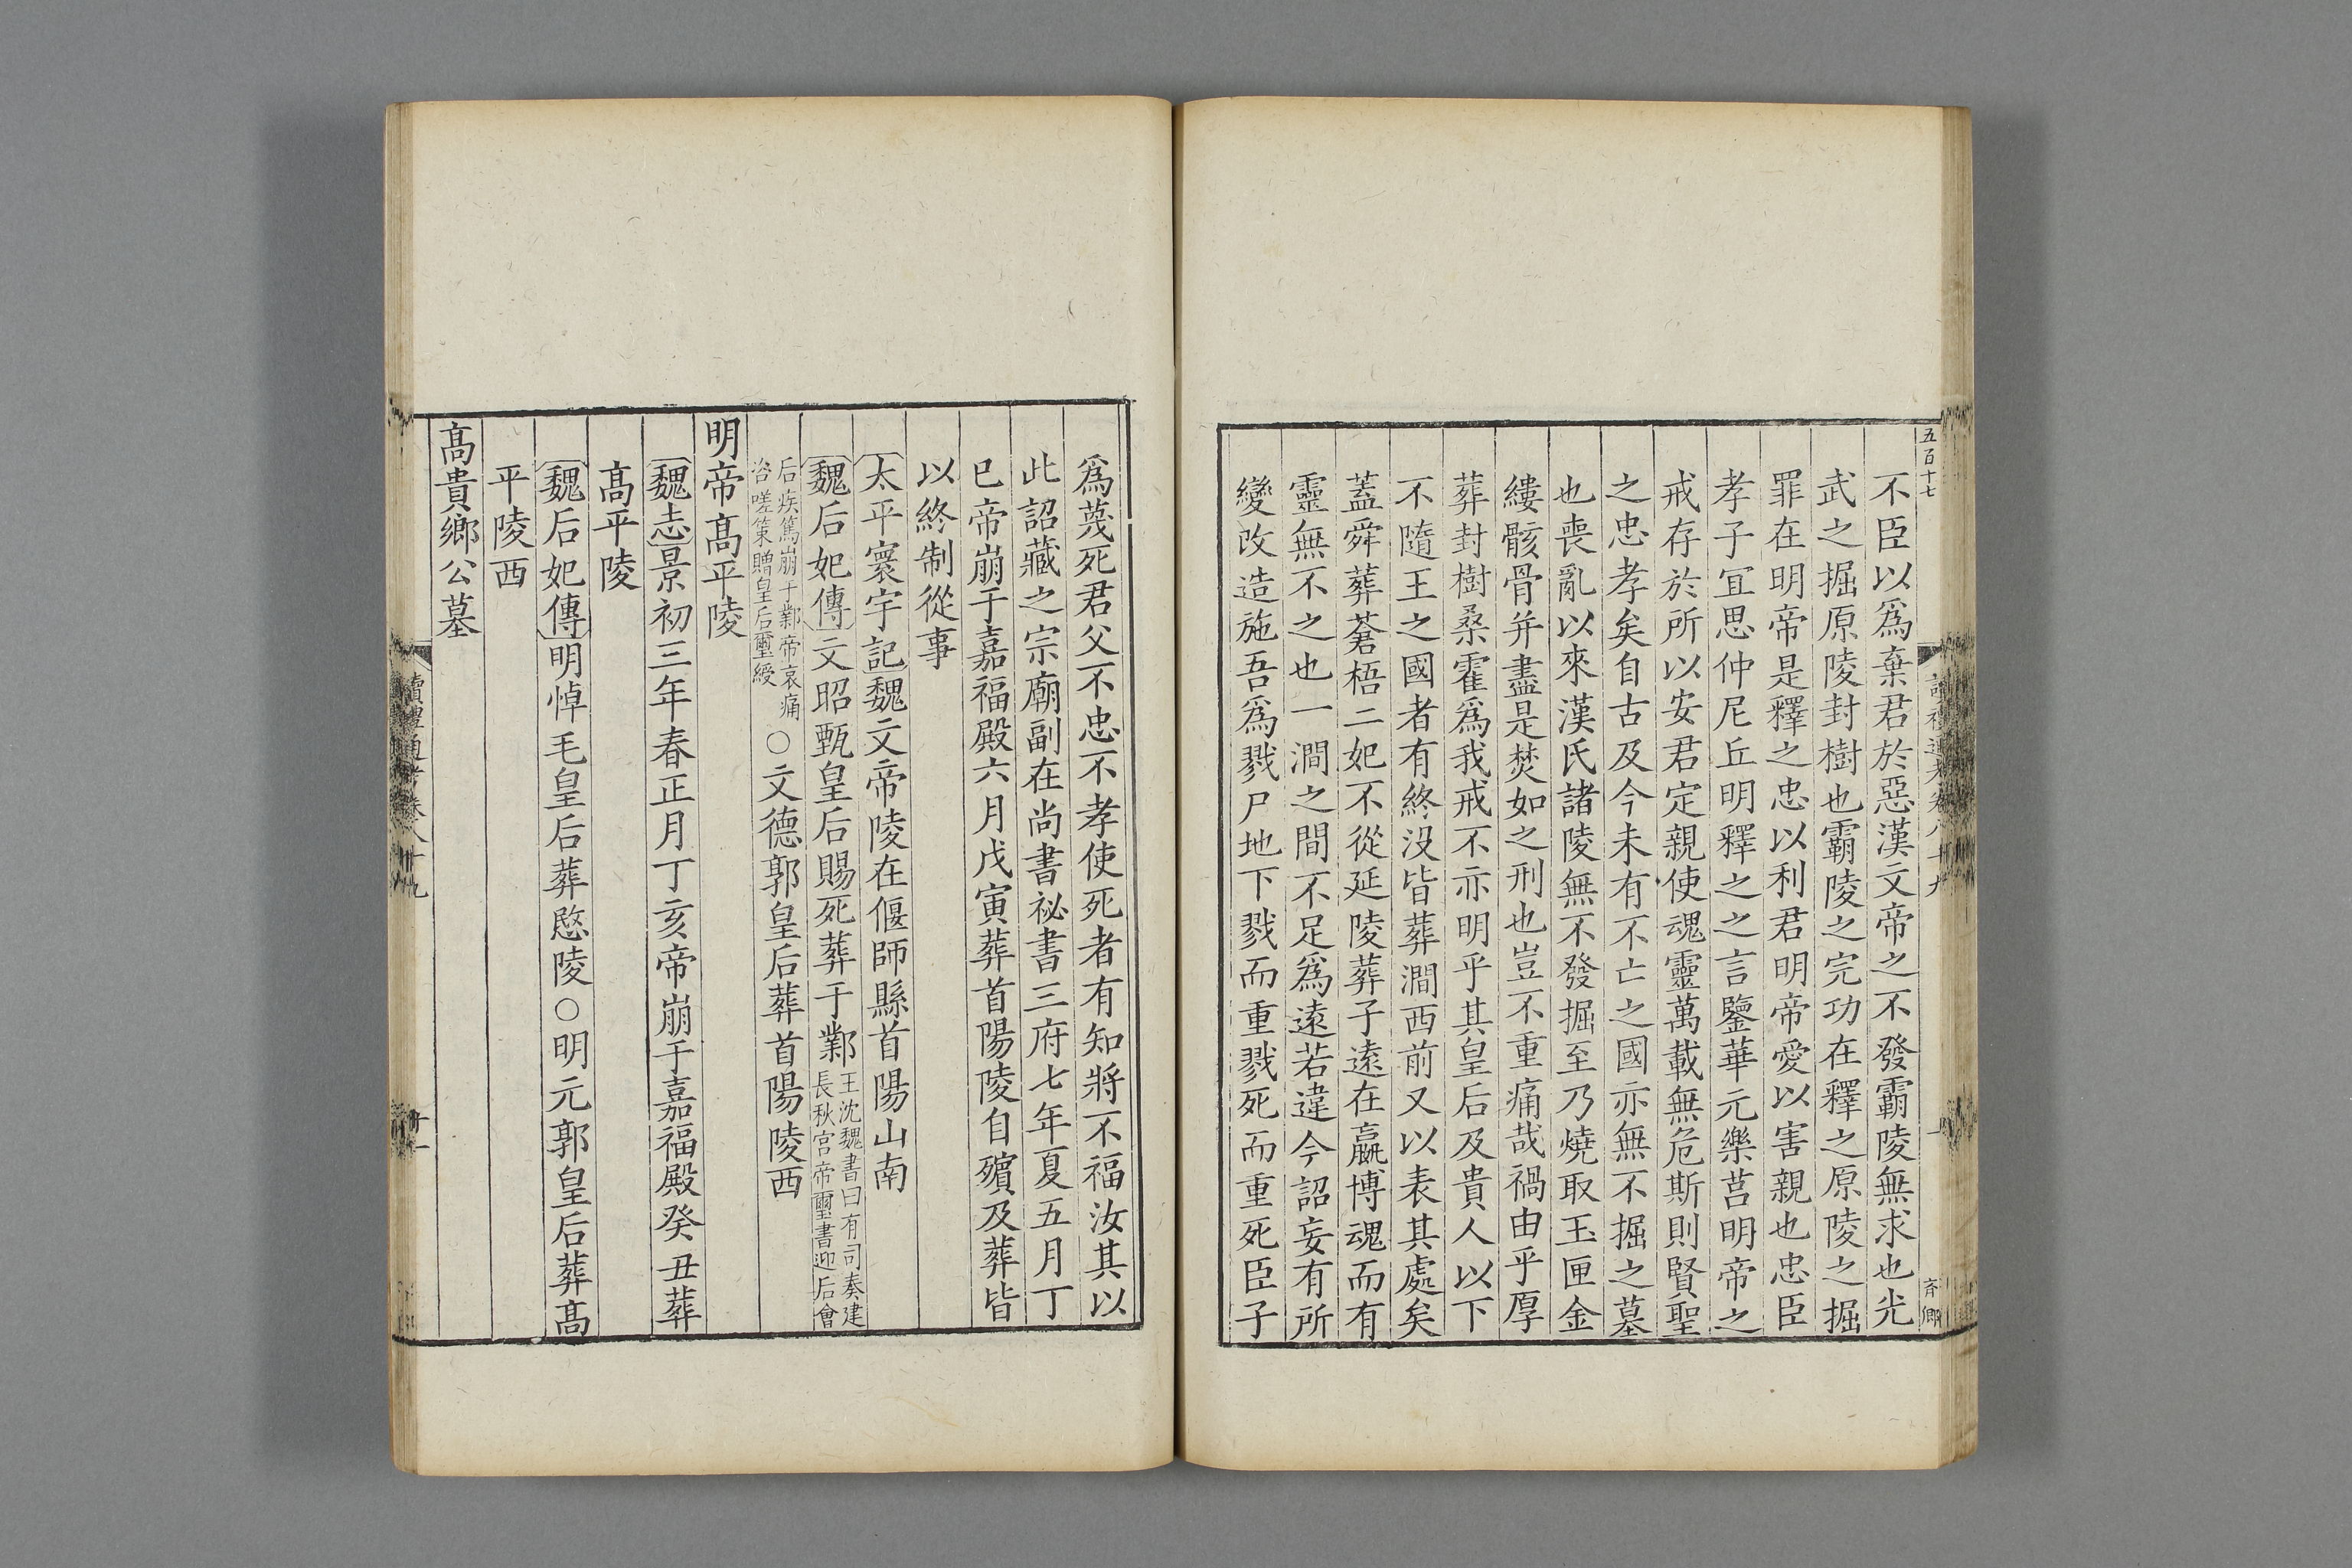 五百十七
不臣以爲棄君於惡漢文帝之不發霸陵無求也光
武之掘原陵封樹也霸陵之完功在釋之原陵之掘
罪在明帝是釋之忠以利君明帝愛以害親也忠臣
孝子宜思仲尼丘明釋之之言鑒華元樂莒明帝之
戒存於所以安君定親使魂靈萬載無危斯則賢聖
之忠孝矣自古及今未有不亡之國亦無不掘之墓
也喪亂以來漢氏諸陵無不發掘至乃燒取玉匣金
縷骸骨并盡是焚如之刑也豈不重痛哉禍由乎厚
葬封樹桑霍爲我戒不亦明乎其皇后及貴人以下
不隨王之國者有終没皆葬澗西前又以表其處矣
蓋舜葬蒼梧二妃不從延陵葬子遠在嬴博魂而有
靈無不之也一澗之間不足爲遠若違今詔妄有所
變改造施吾爲戮尸地下戮而重戮死而重死臣子
爲蔑死君父不忠不孝使死者有知將不福汝其以
此詔藏之宗廟副在尚書祕書三府七年夏五月丁
巳帝崩于嘉福殿六月戊寅葬首陽陵自殯及葬皆
以終制從事
太平寰宇記魏文帝陵在偃師縣首陽山南
魏后妃傳文昭甄皇后賜死葬于鄴王沈魏書曰有司奏建長秋宫帝璽書迎后會
后疾篤崩于鄴帝哀痛咨嗟策贈皇后璽綬○文德郭皇后葬首陽陵西
明帝髙平陵
魏志景初三年春正月丁亥帝崩于嘉福殿癸丑葬
髙平陵
魏后妃傳明悼毛皇后葬愍陵○明元郭皇后葬髙
平陵西
髙貴鄉公墓
讀禮通考卷八十九